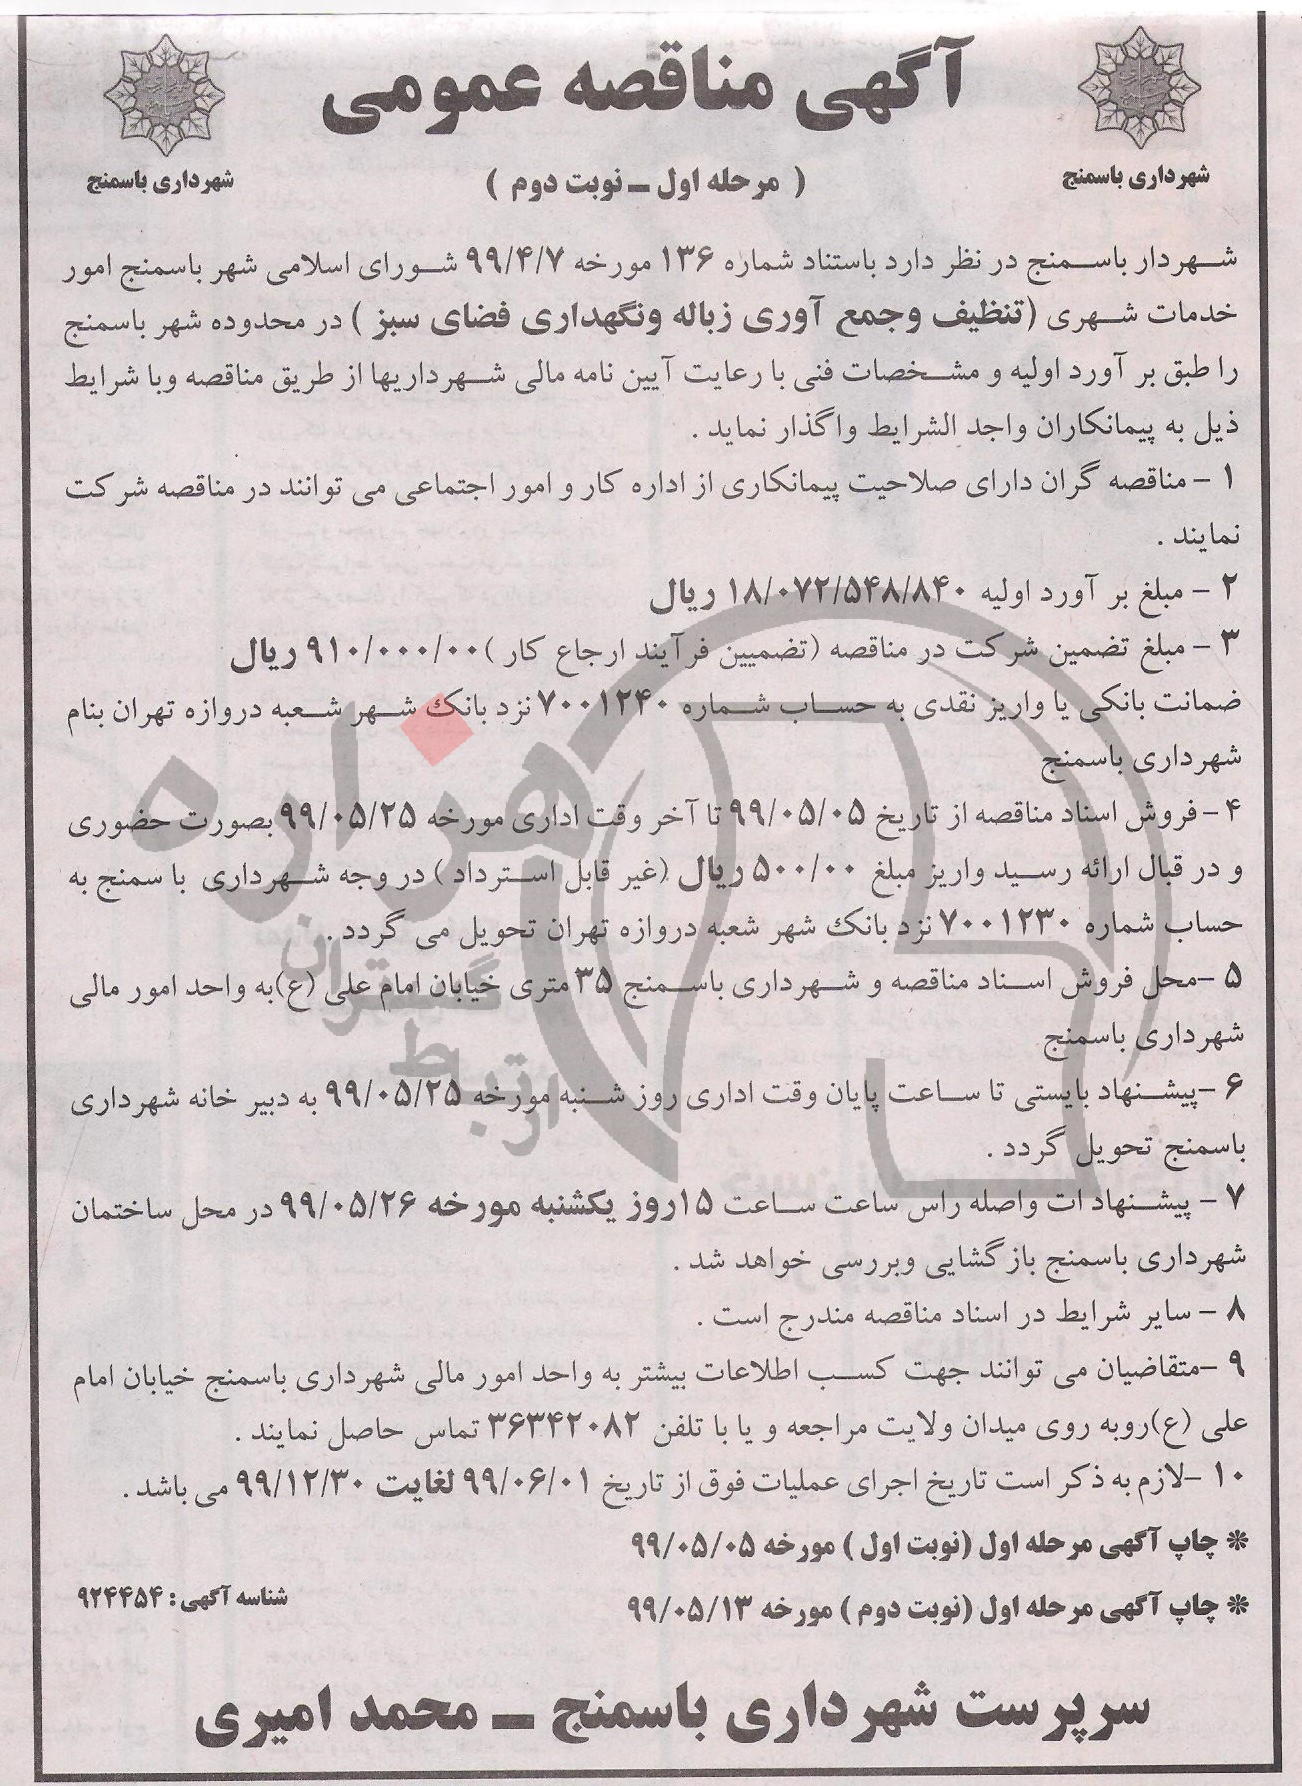 آگهی مناقصه عمومی
شهرداری باسمنج
شهرداری باسمنج
( مرحله اول ـ نوبت دوم )
شهردار باسمنج در نظر دارد باستناد شماره ۱۳۶ مورخه ۹۹/۴/۷ شورای اسلامی شهر باسمنج امور
خدمات شهری (تنظیف وجمع آوری زباله ونگهداری فضای سبز ) در محدوده شهر باسمنج
را طبق بر آورد اولیه و مشخصات فنی با رعایت آیین نامه مالی شهرداریها از طریق مناقصه وبا شرایط
ذیل به پیمانکاران واجد الشرایط واگذار نماید .
۱ - مناقصه گران دارای صلاحیت پیمانکاری از اداره کار و امور اجتماعی می توانند در مناقصه شرکت
نمایند .
۲ - مبلغ بر آورد اولیه ۱۸/۰۷۲/۵۴۸/۸۴۰ ریال
۳ - مبلغ تضمین شرکت در مناقصه (تضمیین فرآیند ارجاع کار )۹۱۰/۰۰۰/۰۰ ریال
ضمانت بانکی یا واریز نقدی به حساب شماره ۷۰۰۱۲۴۰ نزد بانک شهر شعبه دروازه تهران بنام
شهرداری باسمنج
۴ - فروش اسناد مناقصه از تاریخ ۹۹/۰۵/۰۵ تا آخر وقت اداری مورخه ۹۹/۰۵/۲۵ بصورت حضوری
و در قبال ارائه رسید واریز مبلغ ۵۰۰/۰۰ ریال (غیر قابل استرداد ) در وجه شهرداری با سمنج به
حساب شماره ۷۰۰۱۲۳۰ نزد بانک شهر شعبه دروازه تهران تحویل می گردد .
۵ -محل فروش اسناد مناقصه و شهرداری باسمنج ۳۵ متری خیابان امام علی (ع)به واحد امور مالی
شهرداری باسمنج
۶ -پیشنهاد بایستی تا ساعت پایان وقت اداری روز شنبه مورخه ۹۹/۰۵/۲۵ به دبیر خانه شهرداری
باسمنج تحویل گردد .
۷ - پیشنهاد ات واصله راس ساعت ساعت ۱۵روز یکشنبه مورخه ۹۹/۰۵/۲۶ در محل ساختمان
شهرداری باسمنج بازگشایی وبررسی خواهد شد .
۸ - سایر شرایط در اسناد مناقصه مندرج است .
۹ -متقاضیان می توانند جهت کسب اطلاعات بیشتر به واحد امور مالی شهرداری باسمنج خیابان امام
علی (ع)روبه روی میدان ولایت مراجعه و یا با تلفن ۳۶۳۴۲۰۸۲ تماس حاصل نمایند .
۱۰ -لازم به ذکر است تاریخ اجرای عملیات فوق از تاریخ ۹۹/۰۶/۰۱ لغایت ۹۹/۱۲/۳۰ می باشد .
* چاپ آگهی مرحله اول (نوبت اول ) مورخه ۹۹/۰۵/۰۵
* چاپ آگهی مرحله اول (نوبت دوم ) مورخه ۹۹/۰۵/۱۳
شناسه آگهی : ۹۲۴۴۵۴
سرپرست شهرداری باسمنج ـ محمد امیری
هزاره
گستران
ارتباط